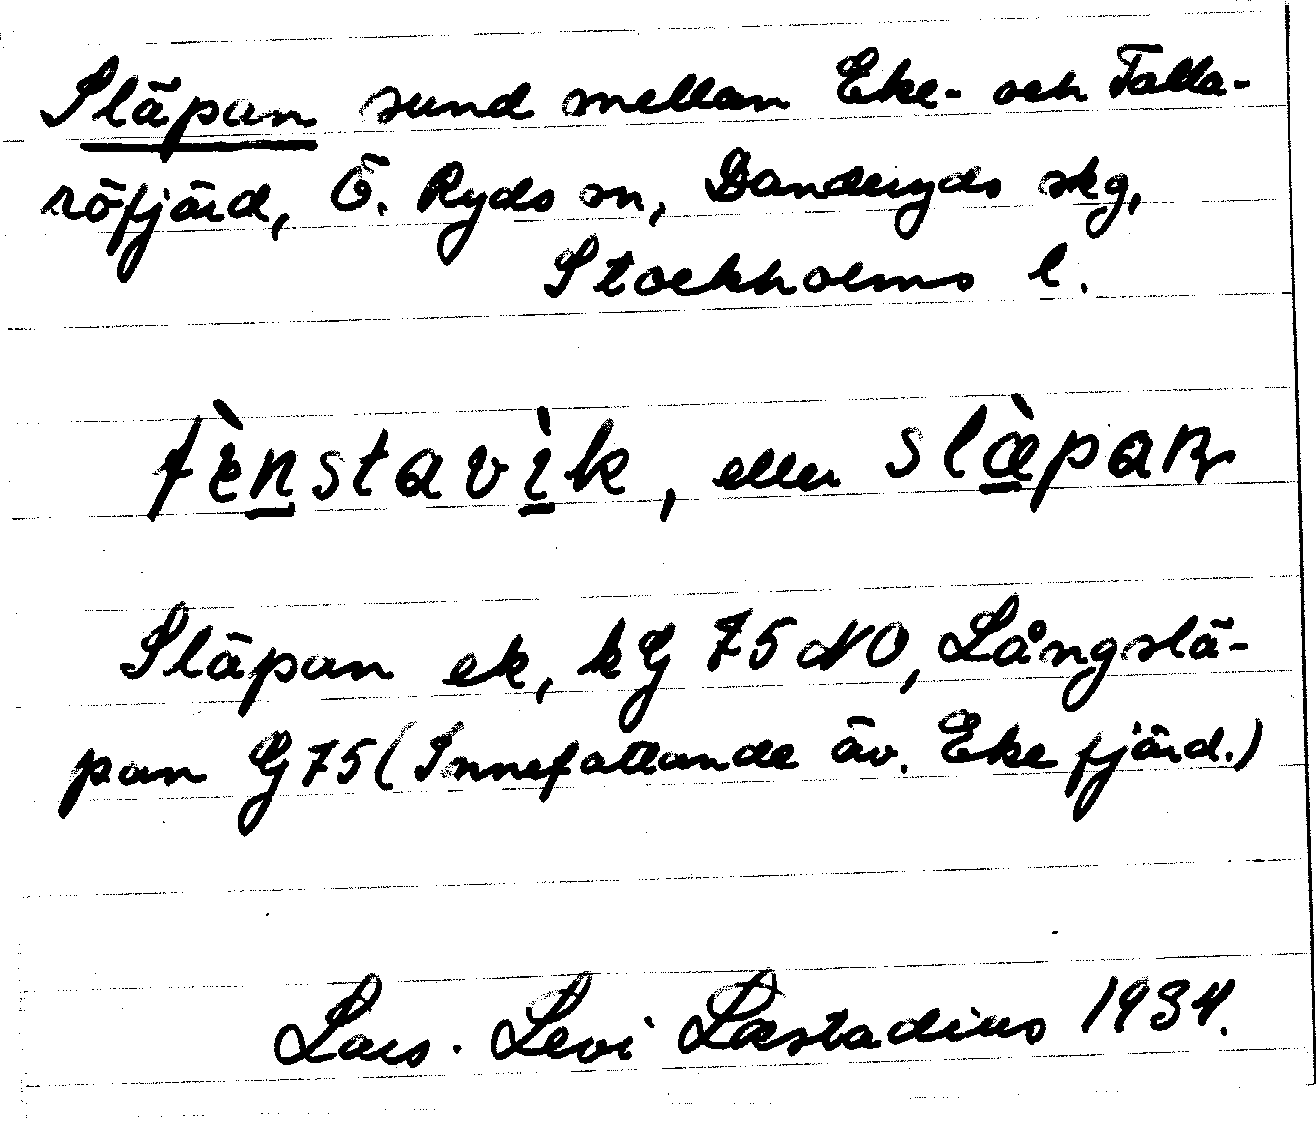 Släpan sund mellan Eke- och Talla-
röfjärd, Ö. Ryds sn, Danderyds skg,
Stockholms l.
fènstavìk, eller slæ̀pan
Släpan ek, kG 75 NO, Långslä-
pan G 75 (Innefattande äv. Eke fjärd.)
Lars-Levi Læstadius 1934.